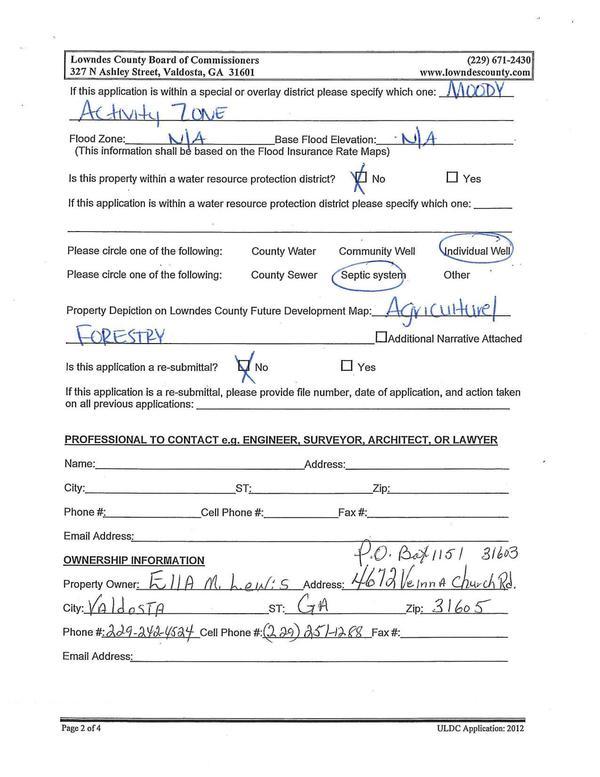 Lowndes County Board of Commissioners (229) 671-2430
327 N Ashley Street, Valdosta, GA 31601 www.lowndescounty.com
If this application is in a special or overlay district please specify which one: MOODY
Activity ZONE
Flood Zone: N/A Base Flood Elevation: N/A
(This information shall be based on the Flood Insurance Rate Maps)
Is this property within a water resource protection district? No Yes
If this application is within a water resource protection district please specify which one:
Please circle one of the following: County Water Community Well Individual Well
Please circle one of the following: County Sewer Septic system Other
Property Depiction on Lowndes County Future Development Map: Agriculture/
FORESTRY Additional Narrative Attached
Is this application a re-submittal? No Yes
If this application is a re-submittal, please provide file number, date of application, and action taken
on all previous applications:
PROFESSIONAL TO CONTACT e.g. ENGINEER, SURVEYOR, ARCHITECT, OR LAWYER
Name: Address:
City: ST: Zip:
Phone #: Cell Phone #: Fax #:
Email Address:
P.O. Box 1151 31603
OWNERSHIP INFORMATION
Property Owner: Ella M. Lewis Address: 4672 Veinna Church Rd.
City: Valdosta ST: GA Zip: 31605
Phone #: 229-242-4524 Cell Phone #: (229) 251-1288 Fax #:
Email Address:
Page 2 of 4 ULDC Application: 2012